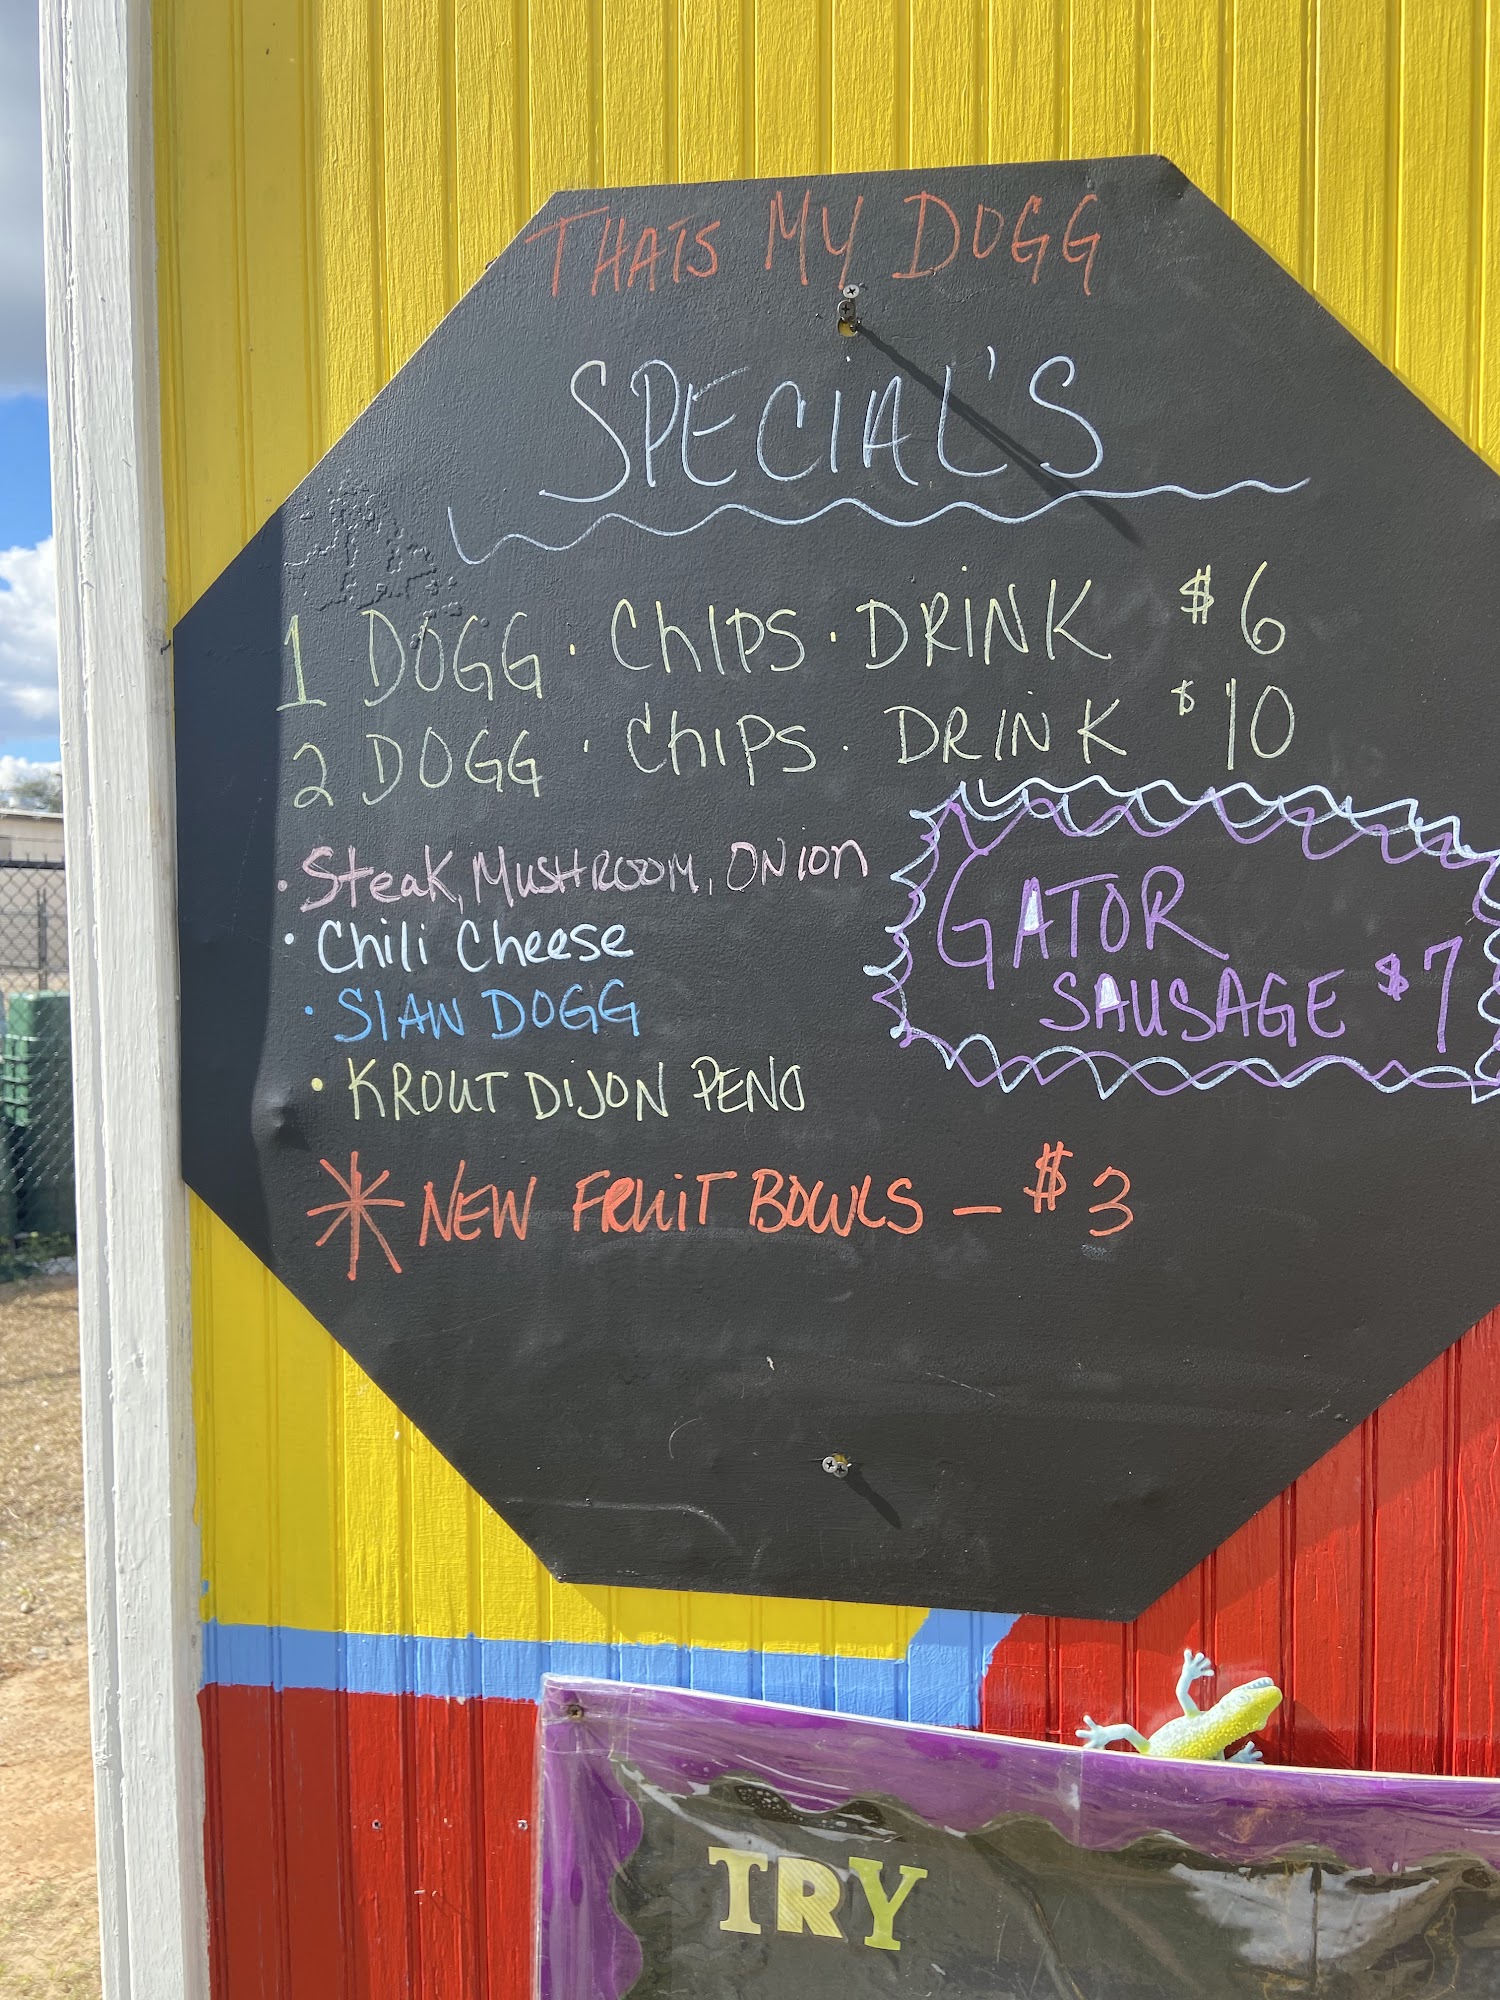 THATS MY DOGG
SPECIAL'S
1 DOGG · ChIPS · DRINK $6
2 DOGG · ChIPS · DRINK $10
· Steak, MUSHROOM, ONion
· Chili Cheese
· SlAW DOGG
· KROUT DIJON PENO
GATOR
SAUSAGE $7
* NEW FRUIT BOWLS - $3
TRY